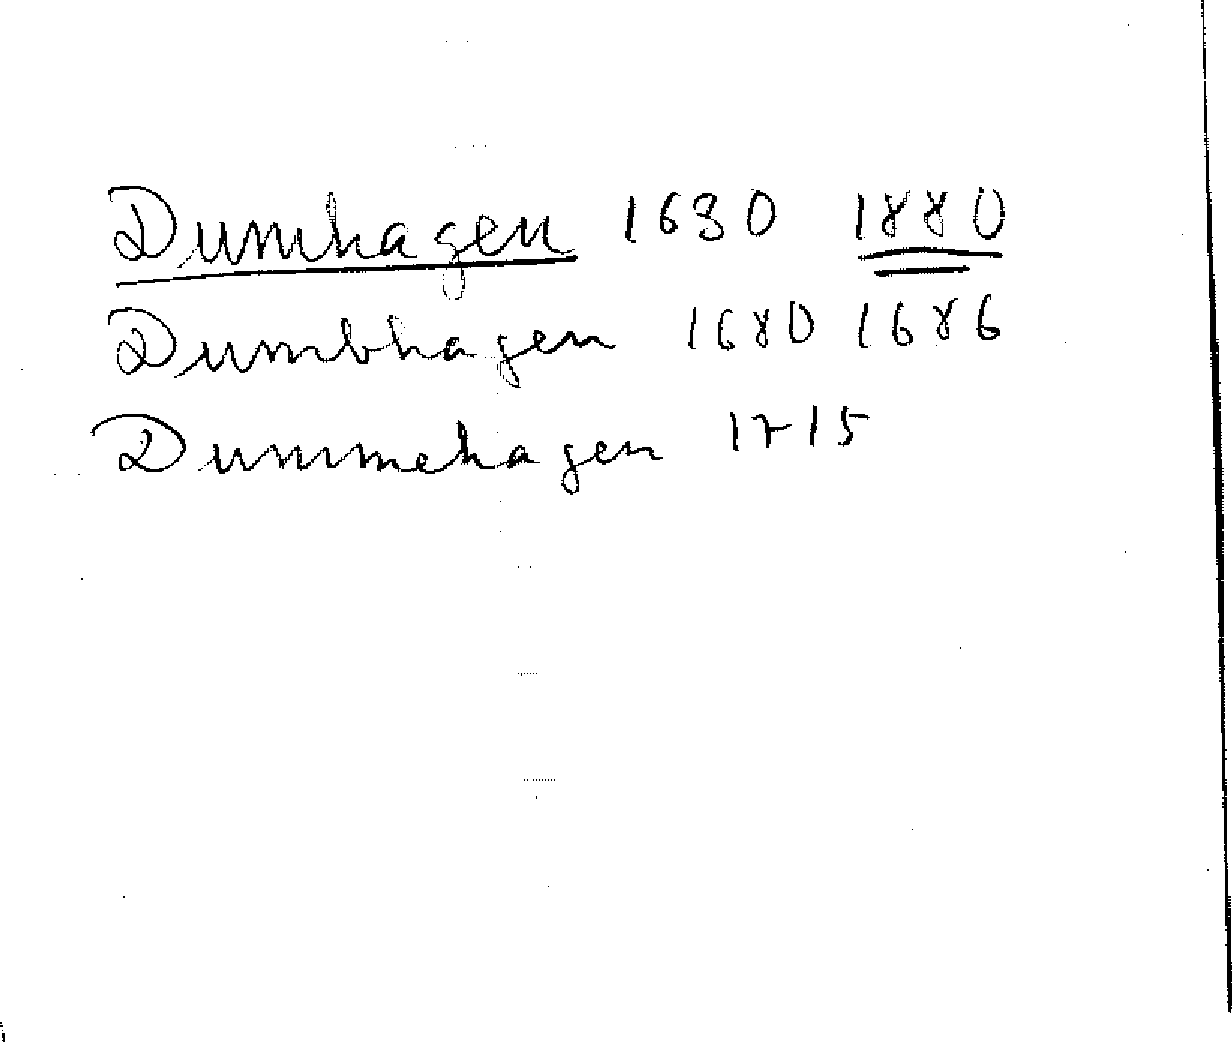 Dumhagen 1680 1880
Dumbhagen 1680 1686
Dummehagen 1715